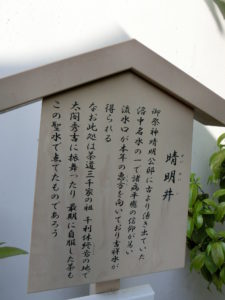 晴明井
せいめいい
御祭神晴明公邸に古より湧き出でていた
洛中名水の一で諸病平癒の信仰が篤い
流水口が本年の恵方を向いており吉祥水が
得られる
なお此処は茶道三千家の祖 千利休終焉の地で
太閤秀吉に振舞ったり 最期に自服した茶も
この聖水で点てたものであろう